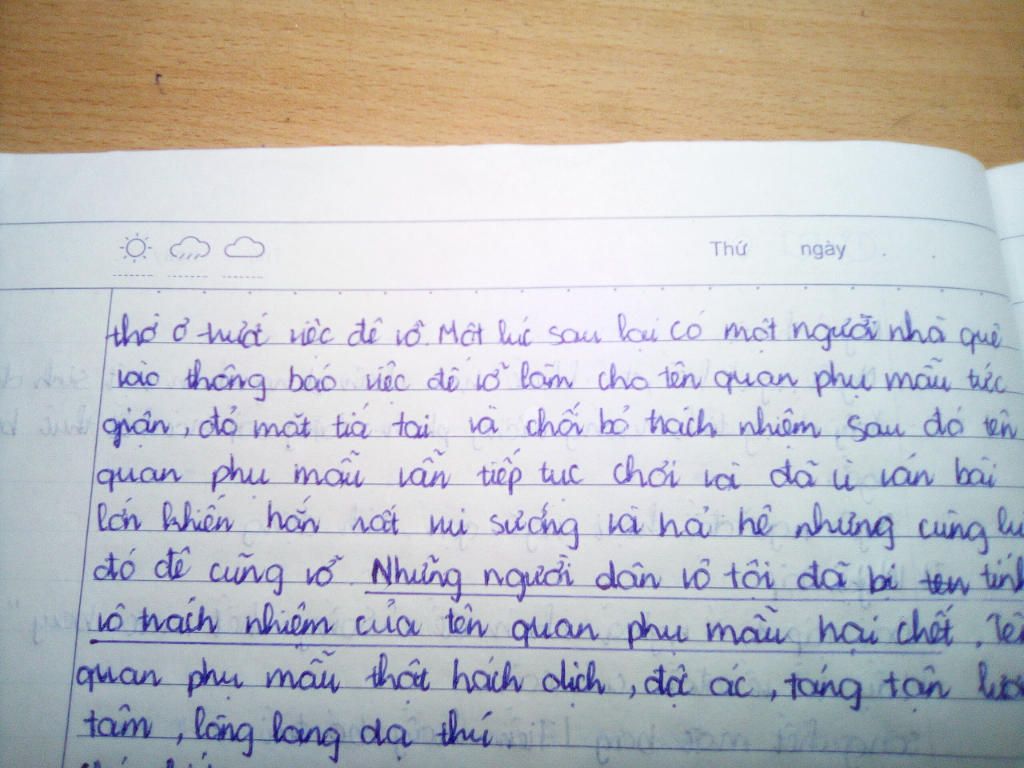 Thứ ngày
thờ ơ trước việc đê vỡ. Một lúc sau lại có một người nhà quê
vào thông báo việc đê vỡ làm cho tên quan phụ mẫu tức
giận, đỏ mặt tía tai và chối bỏ trách nhiệm sau đó tên
quan phụ mẫu vẫn tiếp tục chơi và đã ù ván bài
lớn khiến hắn rất vui sướng và hả hê nhưng cùng
đó đê cũng vỡ. Những người dân vô tội đã bị tên
vô trách nhiệm của tên quan phụ mẫu hại chết.
quan phụ mẫu thật hách dịch, độc ác, táng tận
tâm, lòng lang dạ thú